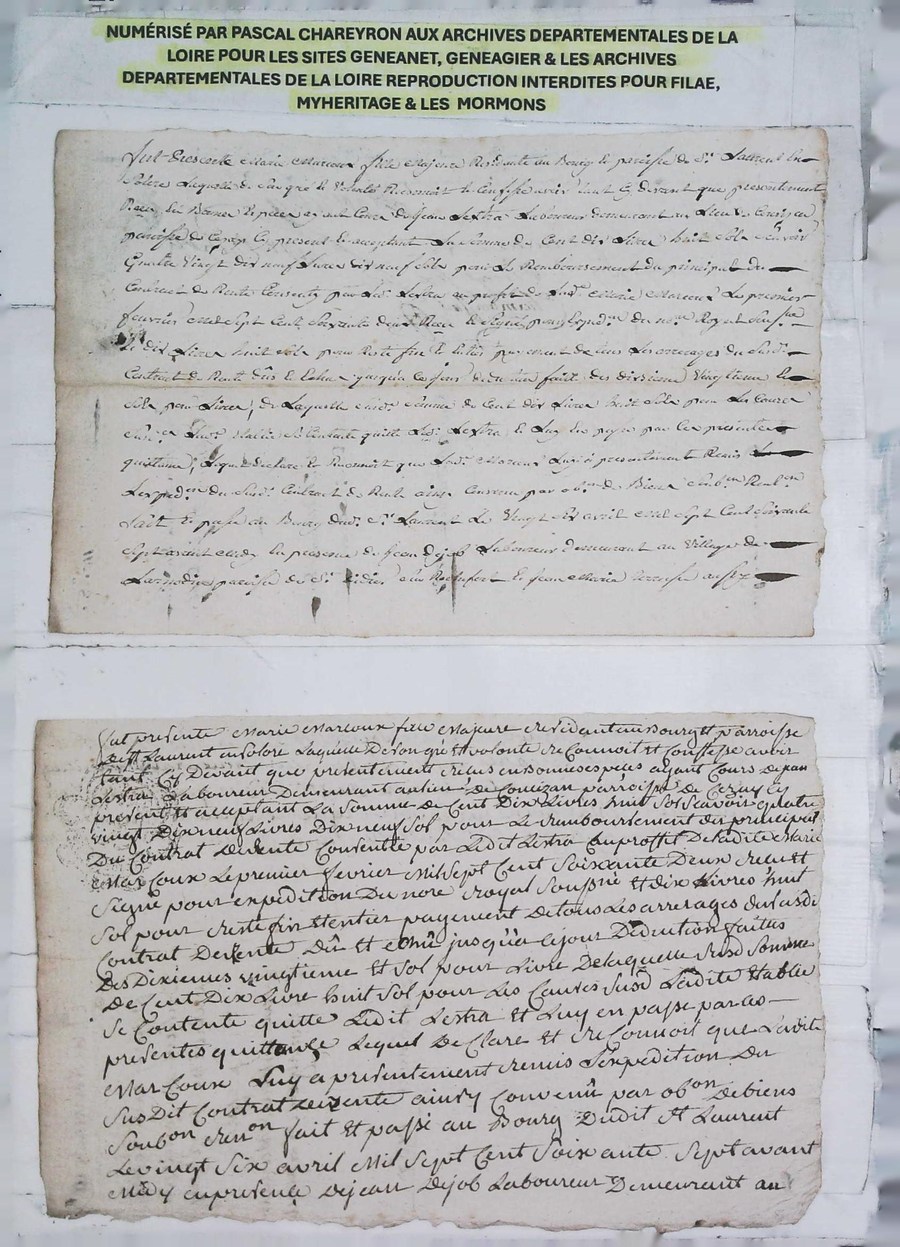 NUMÉRISÉ PAR PASCAL CHAREYRON AUX ARCHIVES DEPARTEMENTALES DE LA
LOIRE POUR LES SITES GENEANET, GENEAGIER & LES ARCHIVES
DEPARTEMENTALES DE LA LOIRE REPRODUCTION INTERDITES POUR FILAE,
MYHERITAGE & LES MORMONS
fut presente Marie Marcoux fille Majeure Residante au Bourg et paroisse de St Laurent en
Solore Laquelle de son gré et volonté Reconnoit et confesse avoir tant cy devant que presentement
Reçu en Bonnes Especes ayant Cours de Jean Lestra Laboureur demeurant au Lieu de
paroisse de Cezay Cy present et acceptant La Somme de Cent dix Livres huit Sols Scavoir
Quatre Vingt dix neuf Livres dix neuf Sols pour Le Remboursement du principal du
Contract de Rente Consenty par Led. Lestra au profit de Lad. Marie Marcoux Le premier
fevrier Mil Sept Cent Soixante deux Reçu et Signé pour Expedon du nore Royal
Et dix Livres huit Sols pour Reste fin et entier payement de tous Les arrerages du Susd.
Contract de Rente dûs et Echus jusqu'a Ce jour deduction faite des dixieme Vingtieme et
Sols pour Livre, de Laquelle Susd. Somme de Cent dix Livres huit Sols pour Les Causes
Susd. Lad. Se Contente quitte Led. Lestra et Luy En passe par Ces presentes
quittance, Lequel declare et Reconnoit que Lad. Marcoux Luy a presentement Remis
du Susd. Contract de Rente ainsy Convenu par obon de Biens
fait et passé au Bourg dud. St Laurent Le Vingt Six avril Mil Sept Cent Soixante
Sept avant midy En presence de Jean Dejob Laboureur demeurant au Village de
paroisse de St Didier Sur Rochefort Et Jean Marie
fut presente Marie Marcoux fille Majeure residante au Bourg et parroisse
de St Laurent en Solore Laquelle De Son gré Et volonté reConnoit et Confesse avoir
tant Cy Devant que présentement reçus en bonnes especes ayant Cours De jean
Lestra Laboureur Demeurant au lieu de Couzan parroisse de Cezay Cy
présent Et acceptant La Somme de Cent Dix Livres huit Sol Scavoir quatre
vingt Dix neuf Livres Dix neuf Sol pour Le remboursement du principal
Du Contrat De rente Consentie par Ledit Lestra au proffit De Ladite Marie
Marcoux Le premier fevrier Mil Sept Cent Soixante Deux recu Et
Signé pour expédition Du nore royal Soussigné Et dix Livres huit
Sol pour reste fin Et entier payement De tous Les arrerages du susdi
Contrat De rente Dû Et echû jusqu'à Ce jour Déduction faittes
Des Dixiemes vingtieme Et Sol pour Livre De laquelle Susd Somme
De Cent Dix Livre huit Sol pour Les Causes Susd Ladite Etablie
Se Contente quitte Ledit Lestra Et Luy en passe par Ces
présentes quittance Lequel DeClare Et reConnoit que Ladite
Marcoux Luy a présentement remis L'expedition Du
Susdit Contrat De rente ainsy Convenû par obon De biens
Soubon renon fait Et passé au Bourg Dudit St Laurent
Le vingt Six avril Mil Sept Cent Soixante Sept avant
Midy en presence De jean Dejob Laboureur Demeurant au